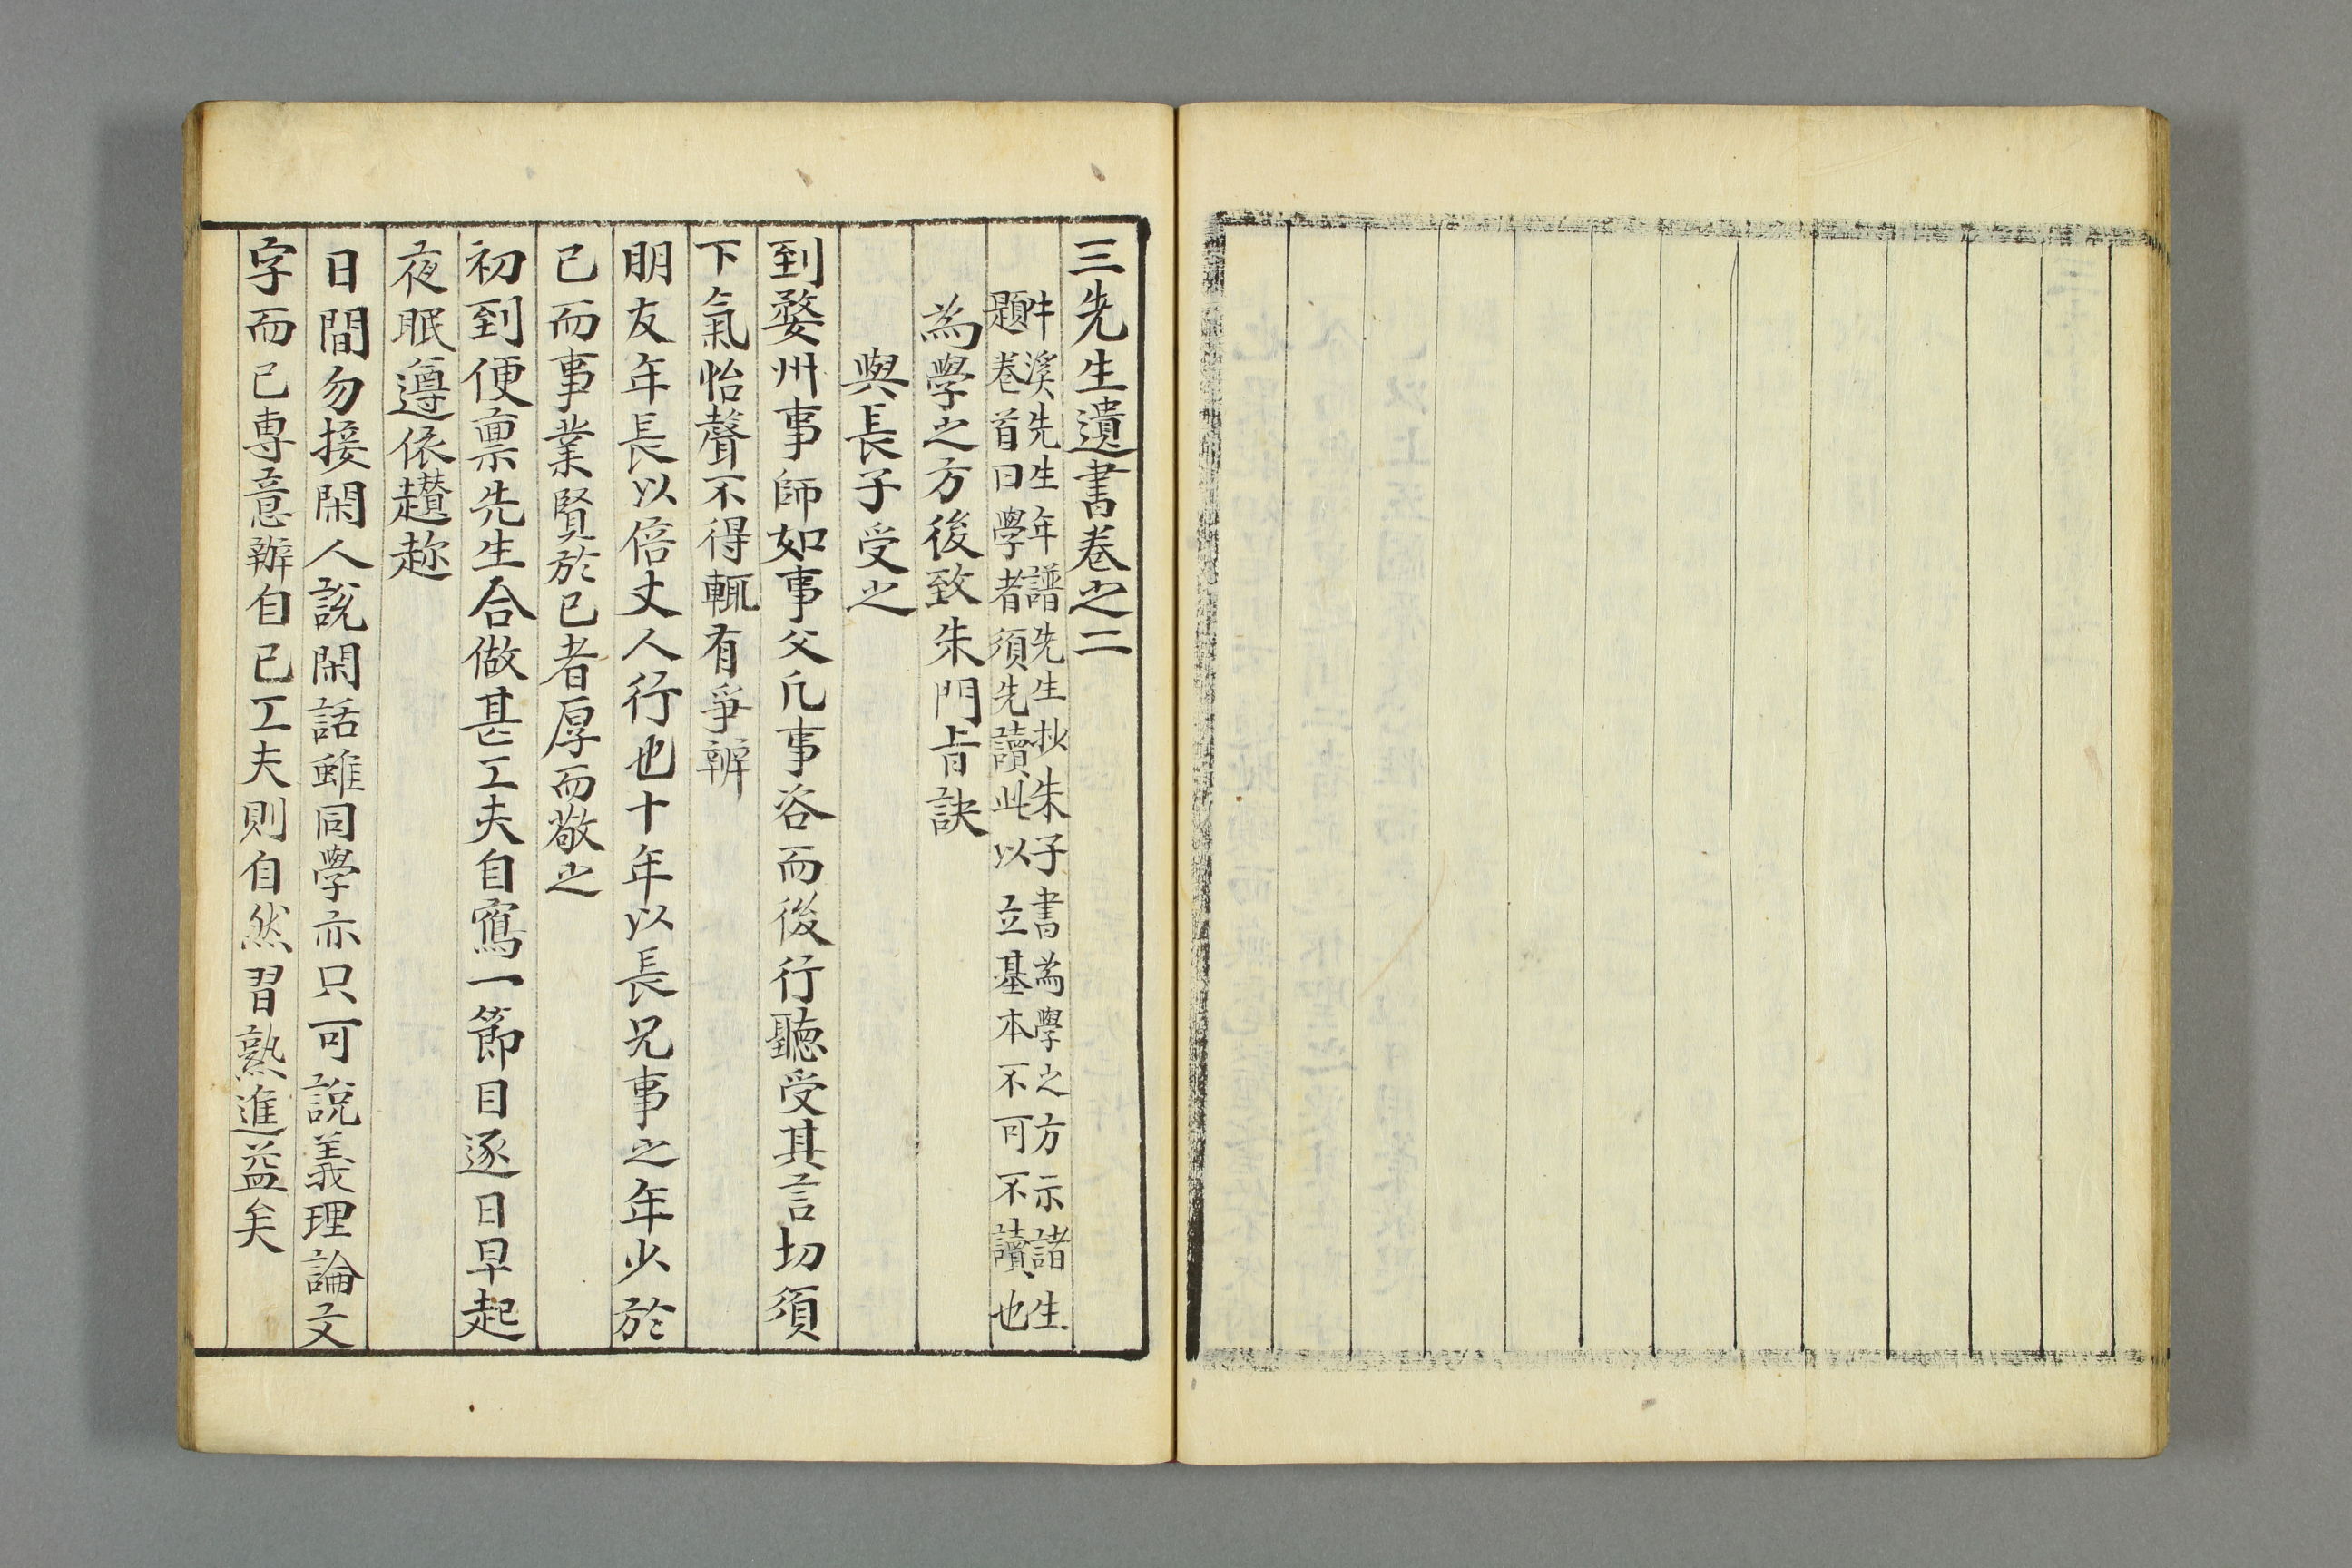 三先生遺書卷之二
牛溪先生年譜先生抄朱子書為學之方示諸生
題卷首曰學者須先讀此以立基本不可不讀也
為學之方後致朱門旨訣
與長子受之
到婺州事師如事父凡事咨而後行聽受其言切須
下氣怡聲不得輒有爭辨
朋友年長以倍丈人行也十年以長兄事之年少於
已而事業賢於已者厚而敬之
初到便禀先生合做甚工夫自寫一節目逐日早起
夜眠遵依趲趂
日間勿接閑人說閑話雖同學亦只可說義理論文
字而已專意辦自已工夫則自然習熟進益矣